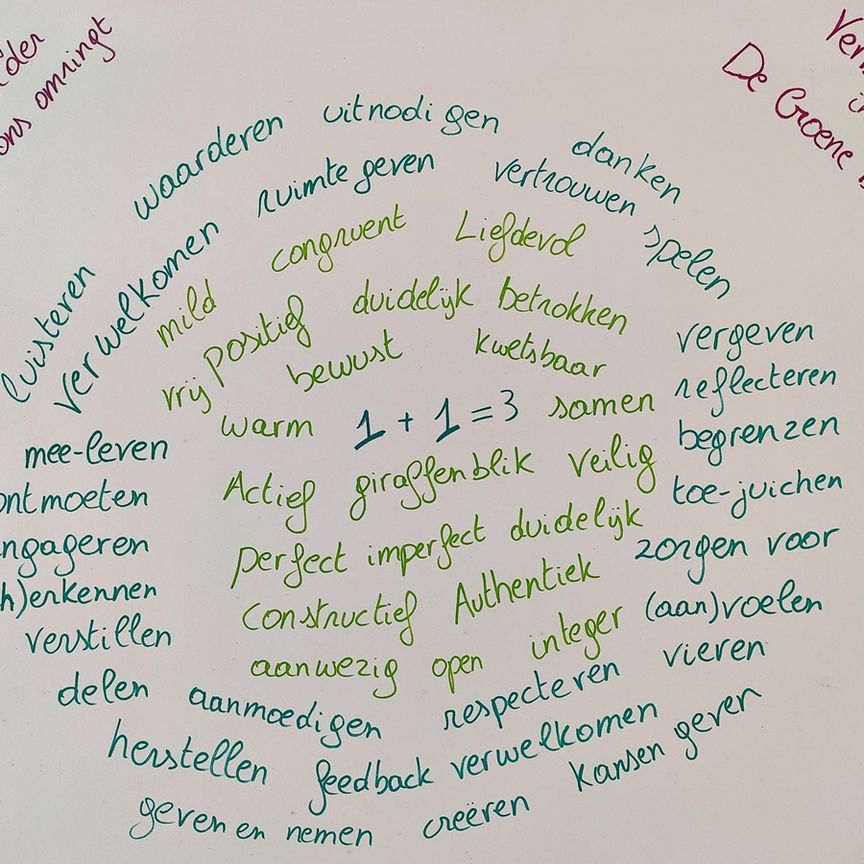 ons omringt
De Groene
waarderen uitnodigen danken
luisteren verwelkomen ruimte geven vertrouwen spelen
mild congruent Liefdevol
vrij positief duidelijk betrokken
bewust kwetsbaar vergeven
warm 1 + 1 = 3 samen reflecteren
mee-leven Actief giraffenblik veilig begrenzen
ontmoeten perfect imperfect duidelijk toe-juichen
ngageren constructief Authentiek zorgen voor
h)erkennen aanwezig open integer (aan)voelen
verstillen
delen aanmoedigen respecteren vieren
herstellen feedback verwelkomen kansen geven
geven en nemen creëren